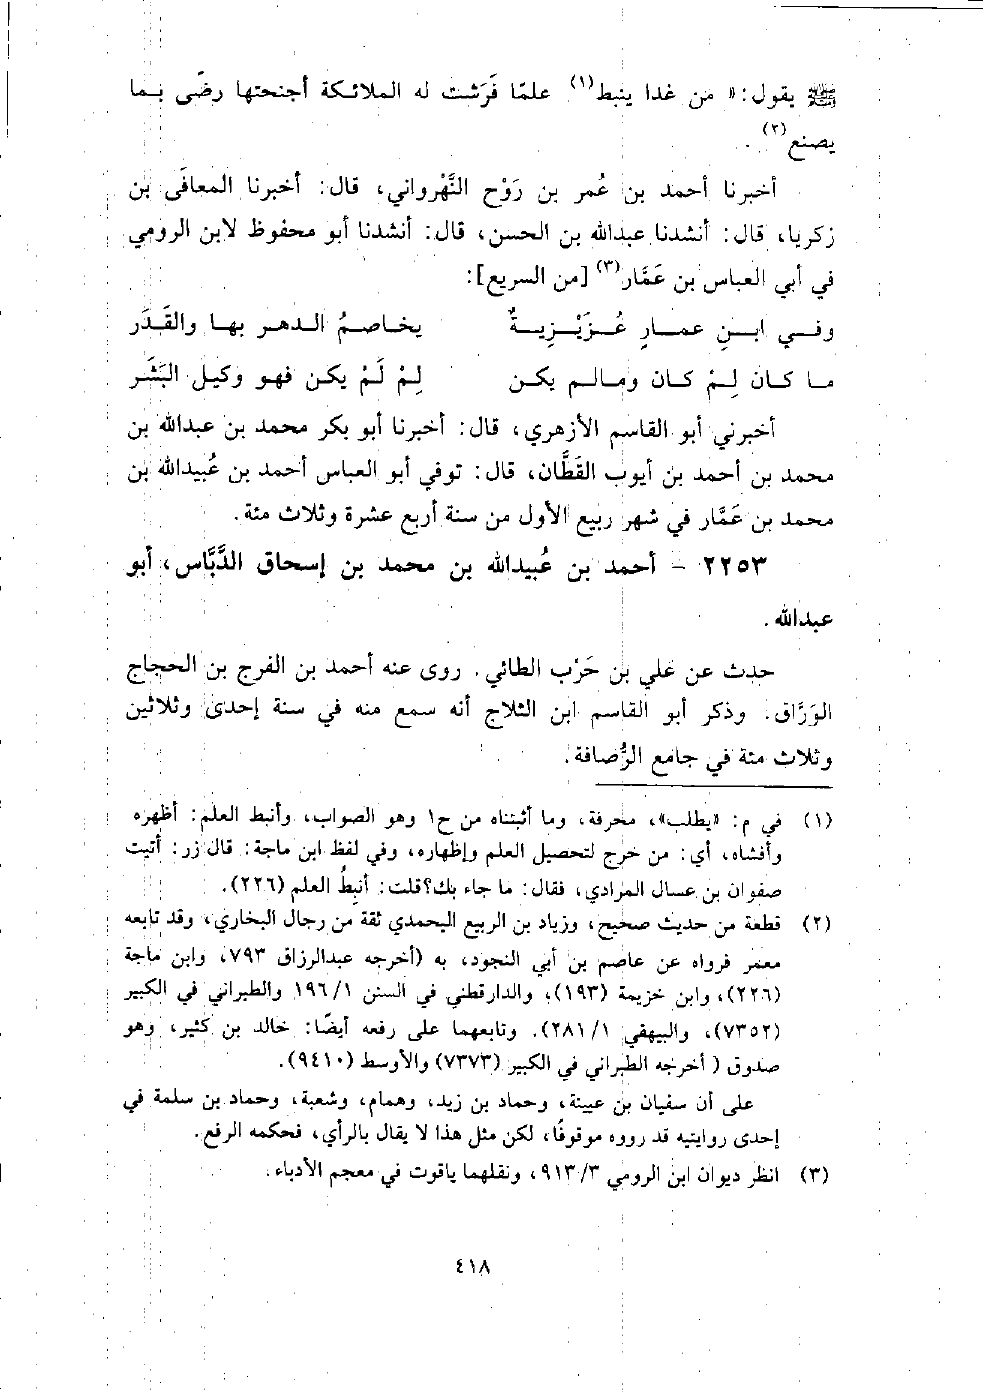 ﷺ يقول: «من غدا ينبط(١) علمًا فَرَشت له الملائكة أجنحتها رضًى بما
يصنع(٢).
أخبرنا أحمد بن عُمر بن رَوْح النَّهْرواني، قال: أخبرنا المعافَى بن
زكريا، قال: أنشدنا عبدالله بن الحسن، قال: أنشدنا أبو محفوظ لابن الرومي
في أبي العباس بن عَمَّار(٣) [من السريع]:
وفي ابنِ عمارٍ عُزَيْزِيةٌ يخاصمُ الدهر بها والقَدَر
ما كان لِمْ كان ومالم يكن لِمْ لَمْ يكن فهو وكيل البَشَر
أخبرني أبو القاسم الأزهري، قال: أخبرنا أبو بكر محمد بن عبدالله بن
محمد بن أحمد بن أيوب القَطَّان، قال: توفي أبو العباس أحمد بن عُبيدالله بن
محمد بن عَمَّار في شهر ربيع الأول من سنة أربع عشرة وثلاث مئة.
٢٢٥٣ - أحمد بن عُبيدالله بن محمد بن إسحاق الدَّبَّاس، أبو
عبدالله.
حدث عن علي بن حَرْب الطائي. روى عنه أحمد بن الفرج بن الحجاج
الوَرَّاق. وذكر أبو القاسم ابن الثلاج أنه سمع منه في سنة إحدى وثلاثين
وثلاث مئة في جامع الرُّصافة.
(١) في م: «يطلب»، محرفة، وما أثبتناه من ح١ وهو الصواب، وأنبط العلم: أظهره
وأفشاه، أي: من خرج لتحصيل العلم وإظهاره، وفي لفظ ابن ماجة: قال زر: أتيت
صفوان بن عسال المرادي، فقال: ما جاء بك؟ قلت: أنبِطُ العلم (٢٢٦).
(٢) قطعة من حديث صحيح، وزياد بن الربيع اليحمدي ثقة من رجال البخاري، وقد تابعه
معمر فرواه عن عاصم بن أبي النجود، به (أخرجه عبدالرزاق ٧٩٣، وابن ماجة
(٢٢٦)، وابن خزيمة (١٩٣)، والدارقطني في السنن ١/ ١٩٦ والطبراني في الكبير
(٧٣٥٢)، والبيهقي ١/ ٢٨١). وتابعهما على رفعه أيضًا: خالد بن كثير، وهو
صدوق (أخرجه الطبراني في الكبير (٧٣٧٣) والأوسط (٩٤١٠).
على أن سفيان بن عيينة، وحماد بن زيد، وهمام، وشعبة، وحماد بن سلمة في
إحدى روايتيه قد رووه موقوفًا، لكن مثل هذا لا يقال بالرأي، فحكمه الرفع.
(٣) انظر ديوان ابن الرومي ٣/ ٩١٣، ونقلهما ياقوت في معجم الأدباء.
٤١٨